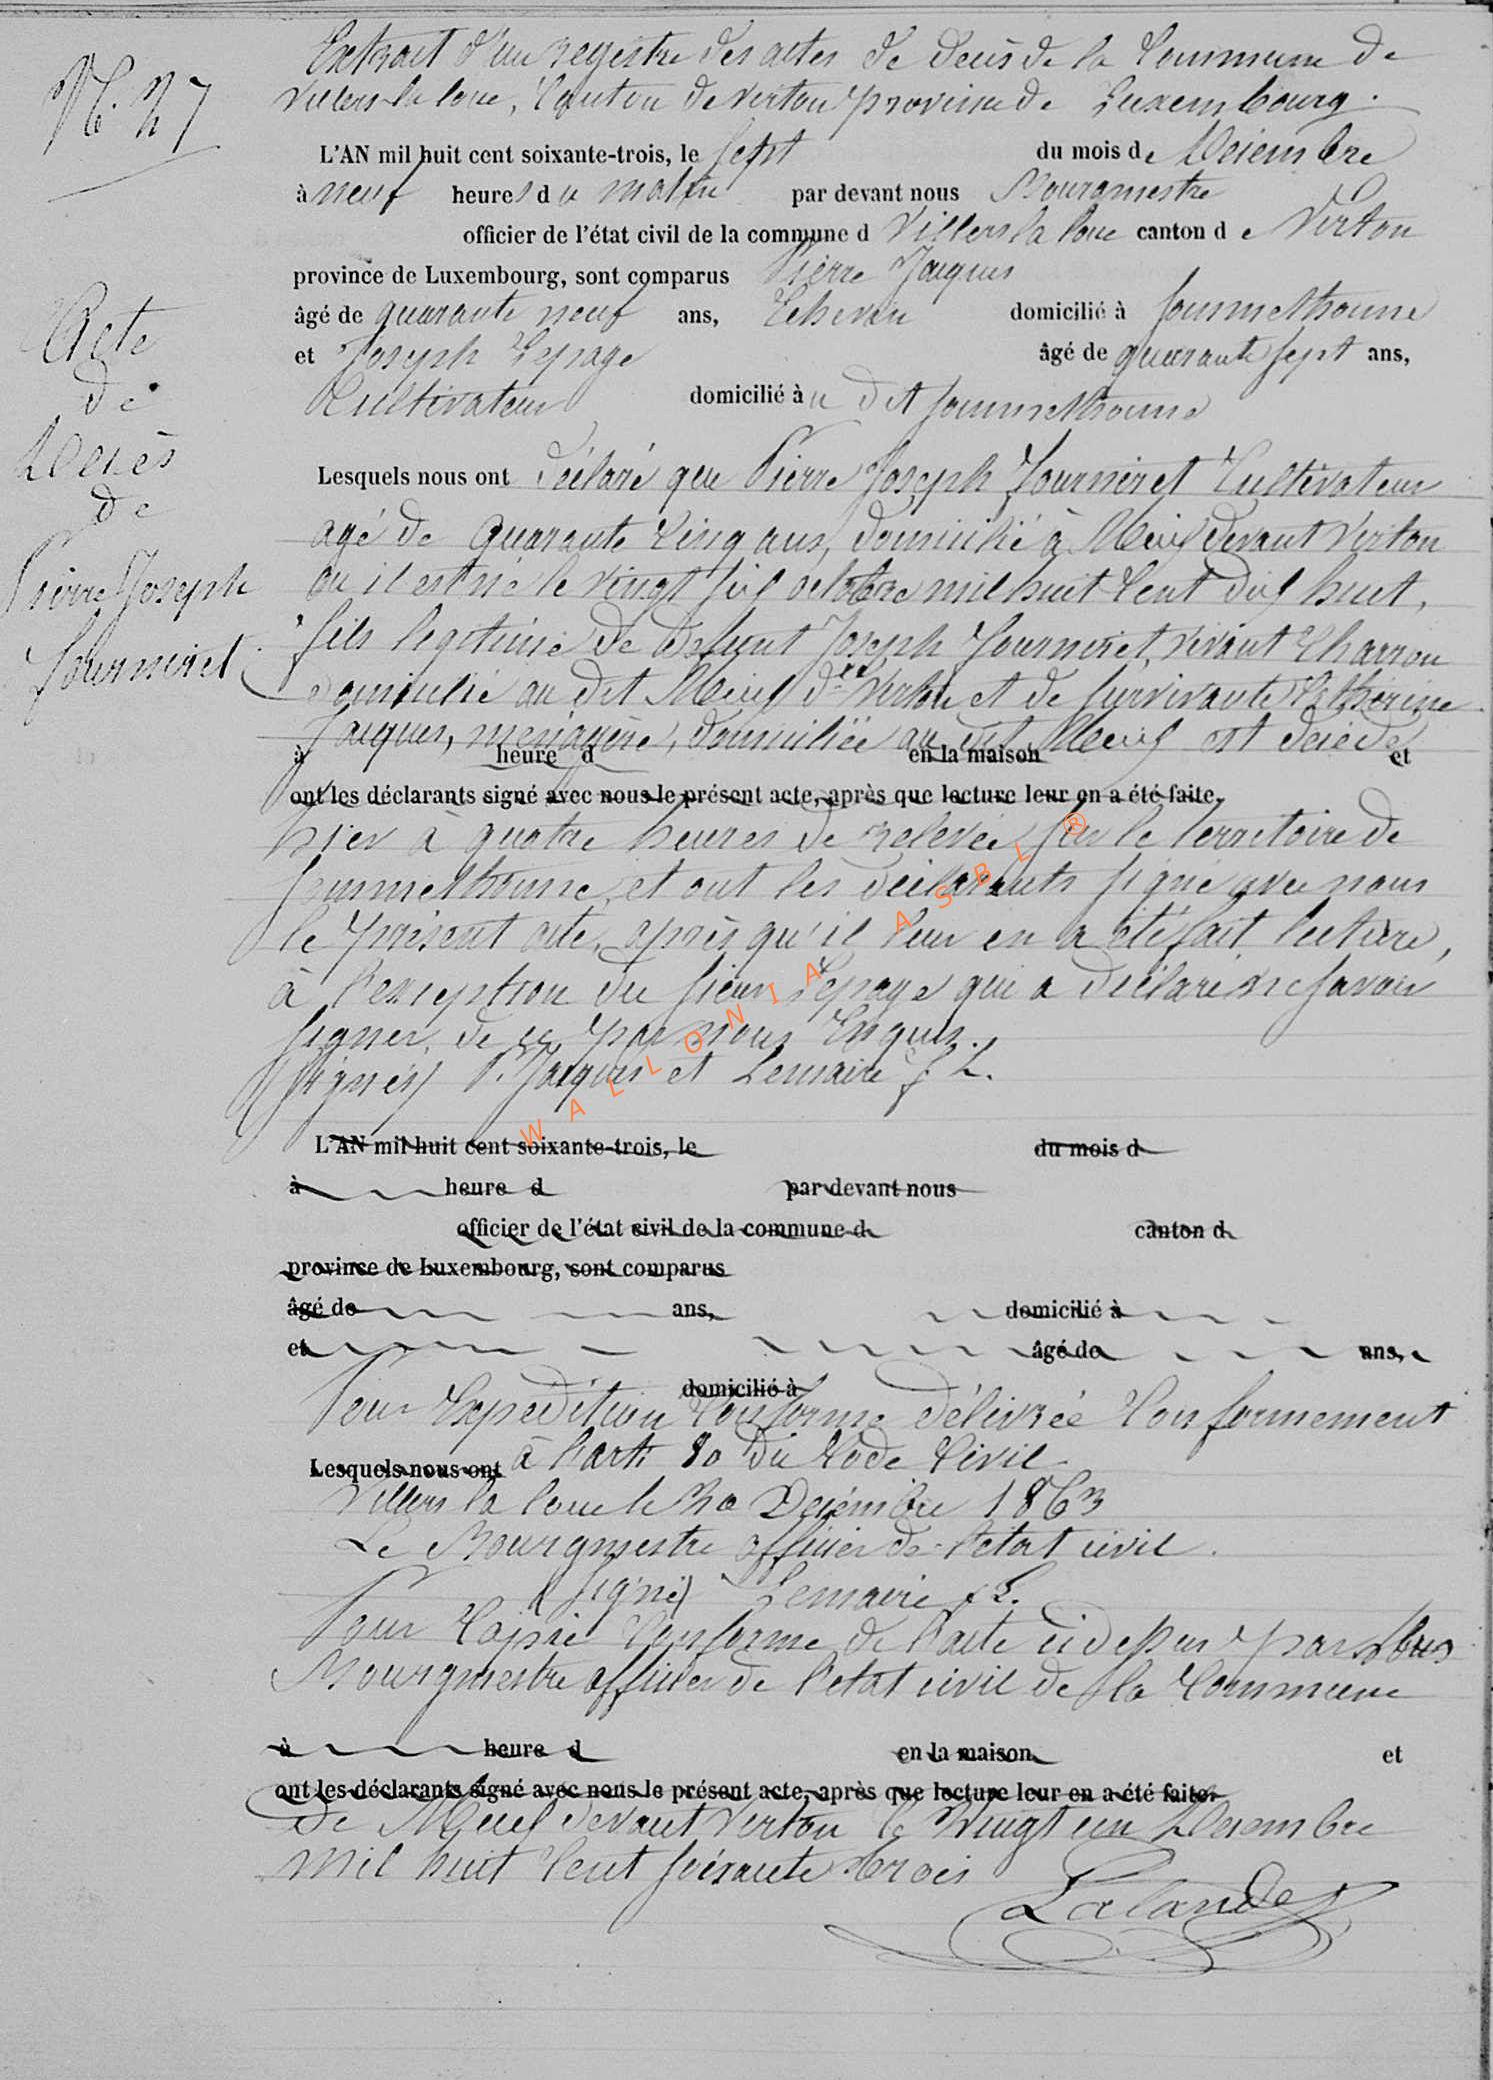 Extrait d'un registre des actes de décès de la Commune de
Villers la loue, Canton de Virton province de Luxembourg.
N° 27
L'AN mil huit cent soixante-trois, le sept du mois de Décembre
à neuf heures du matin par devant nous Bourgmestre
officier de l'état civil de la commune d Villers la loue canton de Virton
province de Luxembourg, sont comparus Pierre Jacques
âgé de quarante neuf ans, Echevin domicilié à Sommethonne
et Joseph Lepage âgé de quarante sept ans,
Cultivateur domicilié au dit Sommethonne
Acte
de
Décès
de
Pierre Joseph
Fourniret
Lesquels nous ont déclaré que Pierre Joseph Fourniret Cultivateur
agé de quarante Cinq ans, domicilié à Meix devant Virton
ou il est né le vingt six octobre mil huit Cent dix huit,
fils legitime de defunt Joseph Fourniret, vivant Charron
domicilié au dit Meix dt Virton et de survivante Catherine
Jacques, menagère, domiciliée au dit Meix est décédé
à heure d en la maison et
ont les déclarants signé avec nous le présent acte, après que lecture leur en a été faite.
hier à quatre heures de relevée sur le territoire de
Sommethonne, et ont les déclarants signé avec nous
le présent acte, après qu'il leur en a été fait lecture,
à l'exception du sieur Lepage qui a déclaré ne savoir
signer, de ce par nous Enquis.
(Signés) P. Jacques et Lemaire f L.
WALLONIA ASBL ®
L'AN mil huit cent soixante-trois, le du mois d
à heure d par devant nous
officier de l'état civil de la commune d canton d
province de Luxembourg, sont comparus
âgé de ans, domicilié à
et âgé de ans,
domicilié à
Pour Expédition Conforme délivrée Conformement
Lesquels nous ont à l'arte 80 du Code Civil
Villers la loue le 20 Décembre 1863
Le Bourgmestre officier de l'etat civil.
(Signé) Lemaire f L.
Pour Copie Conforme de l'acte ci dessus par Nous
Bourgmestre officier de l'etat civil de la Commune
à heure d en la maison et
ont les déclarants signé avec nous le présent acte, après que lecture leur en a été faite.
de Meix devant Virton le vingt un Décembre
mil huit Cent soixante trois
Lalande